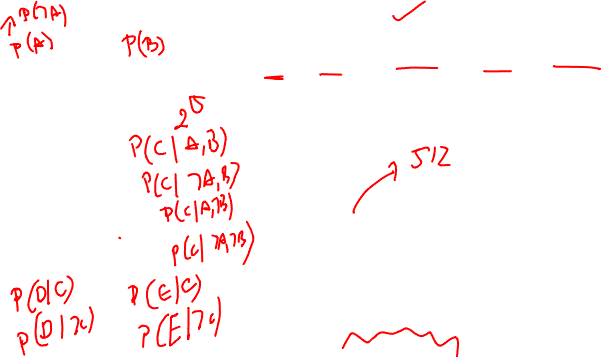 ↗ P(¬A)
P(A) P(B)
2⁵
P(C | A,B)
P(C | ¬A,B)
P(C|A,¬B)
P(C| ¬A,¬B)
512
P(D|C) P(E|C)
P(D|¬C) P(E|¬C)